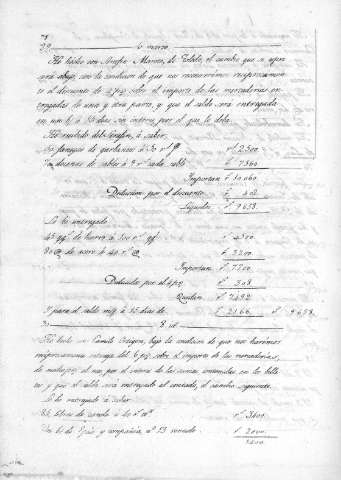 6 marzo
He hecho con Serafin Marcos, de Toledo, el cambio que se expre-
sará abajo, con la condicion de que nos concederemos recíprocamente
el descuento de 4 p% sobre el importe de las mercaderías en-
tregadas de una y otra parte, y que el saldo será entregado
en un á 35 dias sin interes, por el que lo deba.
He recibido del Serafin, á saber:
50 fanegas de garbanzos á 50 rs. fa. rs. 2500
docenas de sables á rs. cada sable 7560
Importan rs. 10.060
Deduccion por el descuento 402
Líquidos rs. 9658
Le he entregado
45 qq. de hierro á 100 rs. qq. rs. 4500
80 @ de acero á 40 rs. @ 3200
Importan rs. 7700
Deducidos por el 4 p% 308
Quedan rs. 7392
Y para el saldo mi á 35 dias de rs. 2266 rs. 9658
8 id
He hecho con Camilo Ortega, bajo la condicion de que nos haremos
recíprocamente rebaja del 6 p% sobre el importe de las mercaderías,
de medio p% al mes, por el interes de las sumas contenidas en los bille-
tes y que el saldo será entregado al contado, el cambio siguiente.
Le he entregado á saber
libras de canela á 40 rs. rs. 3600
de y compañía, nº 13 vencido rs. 2000
5600